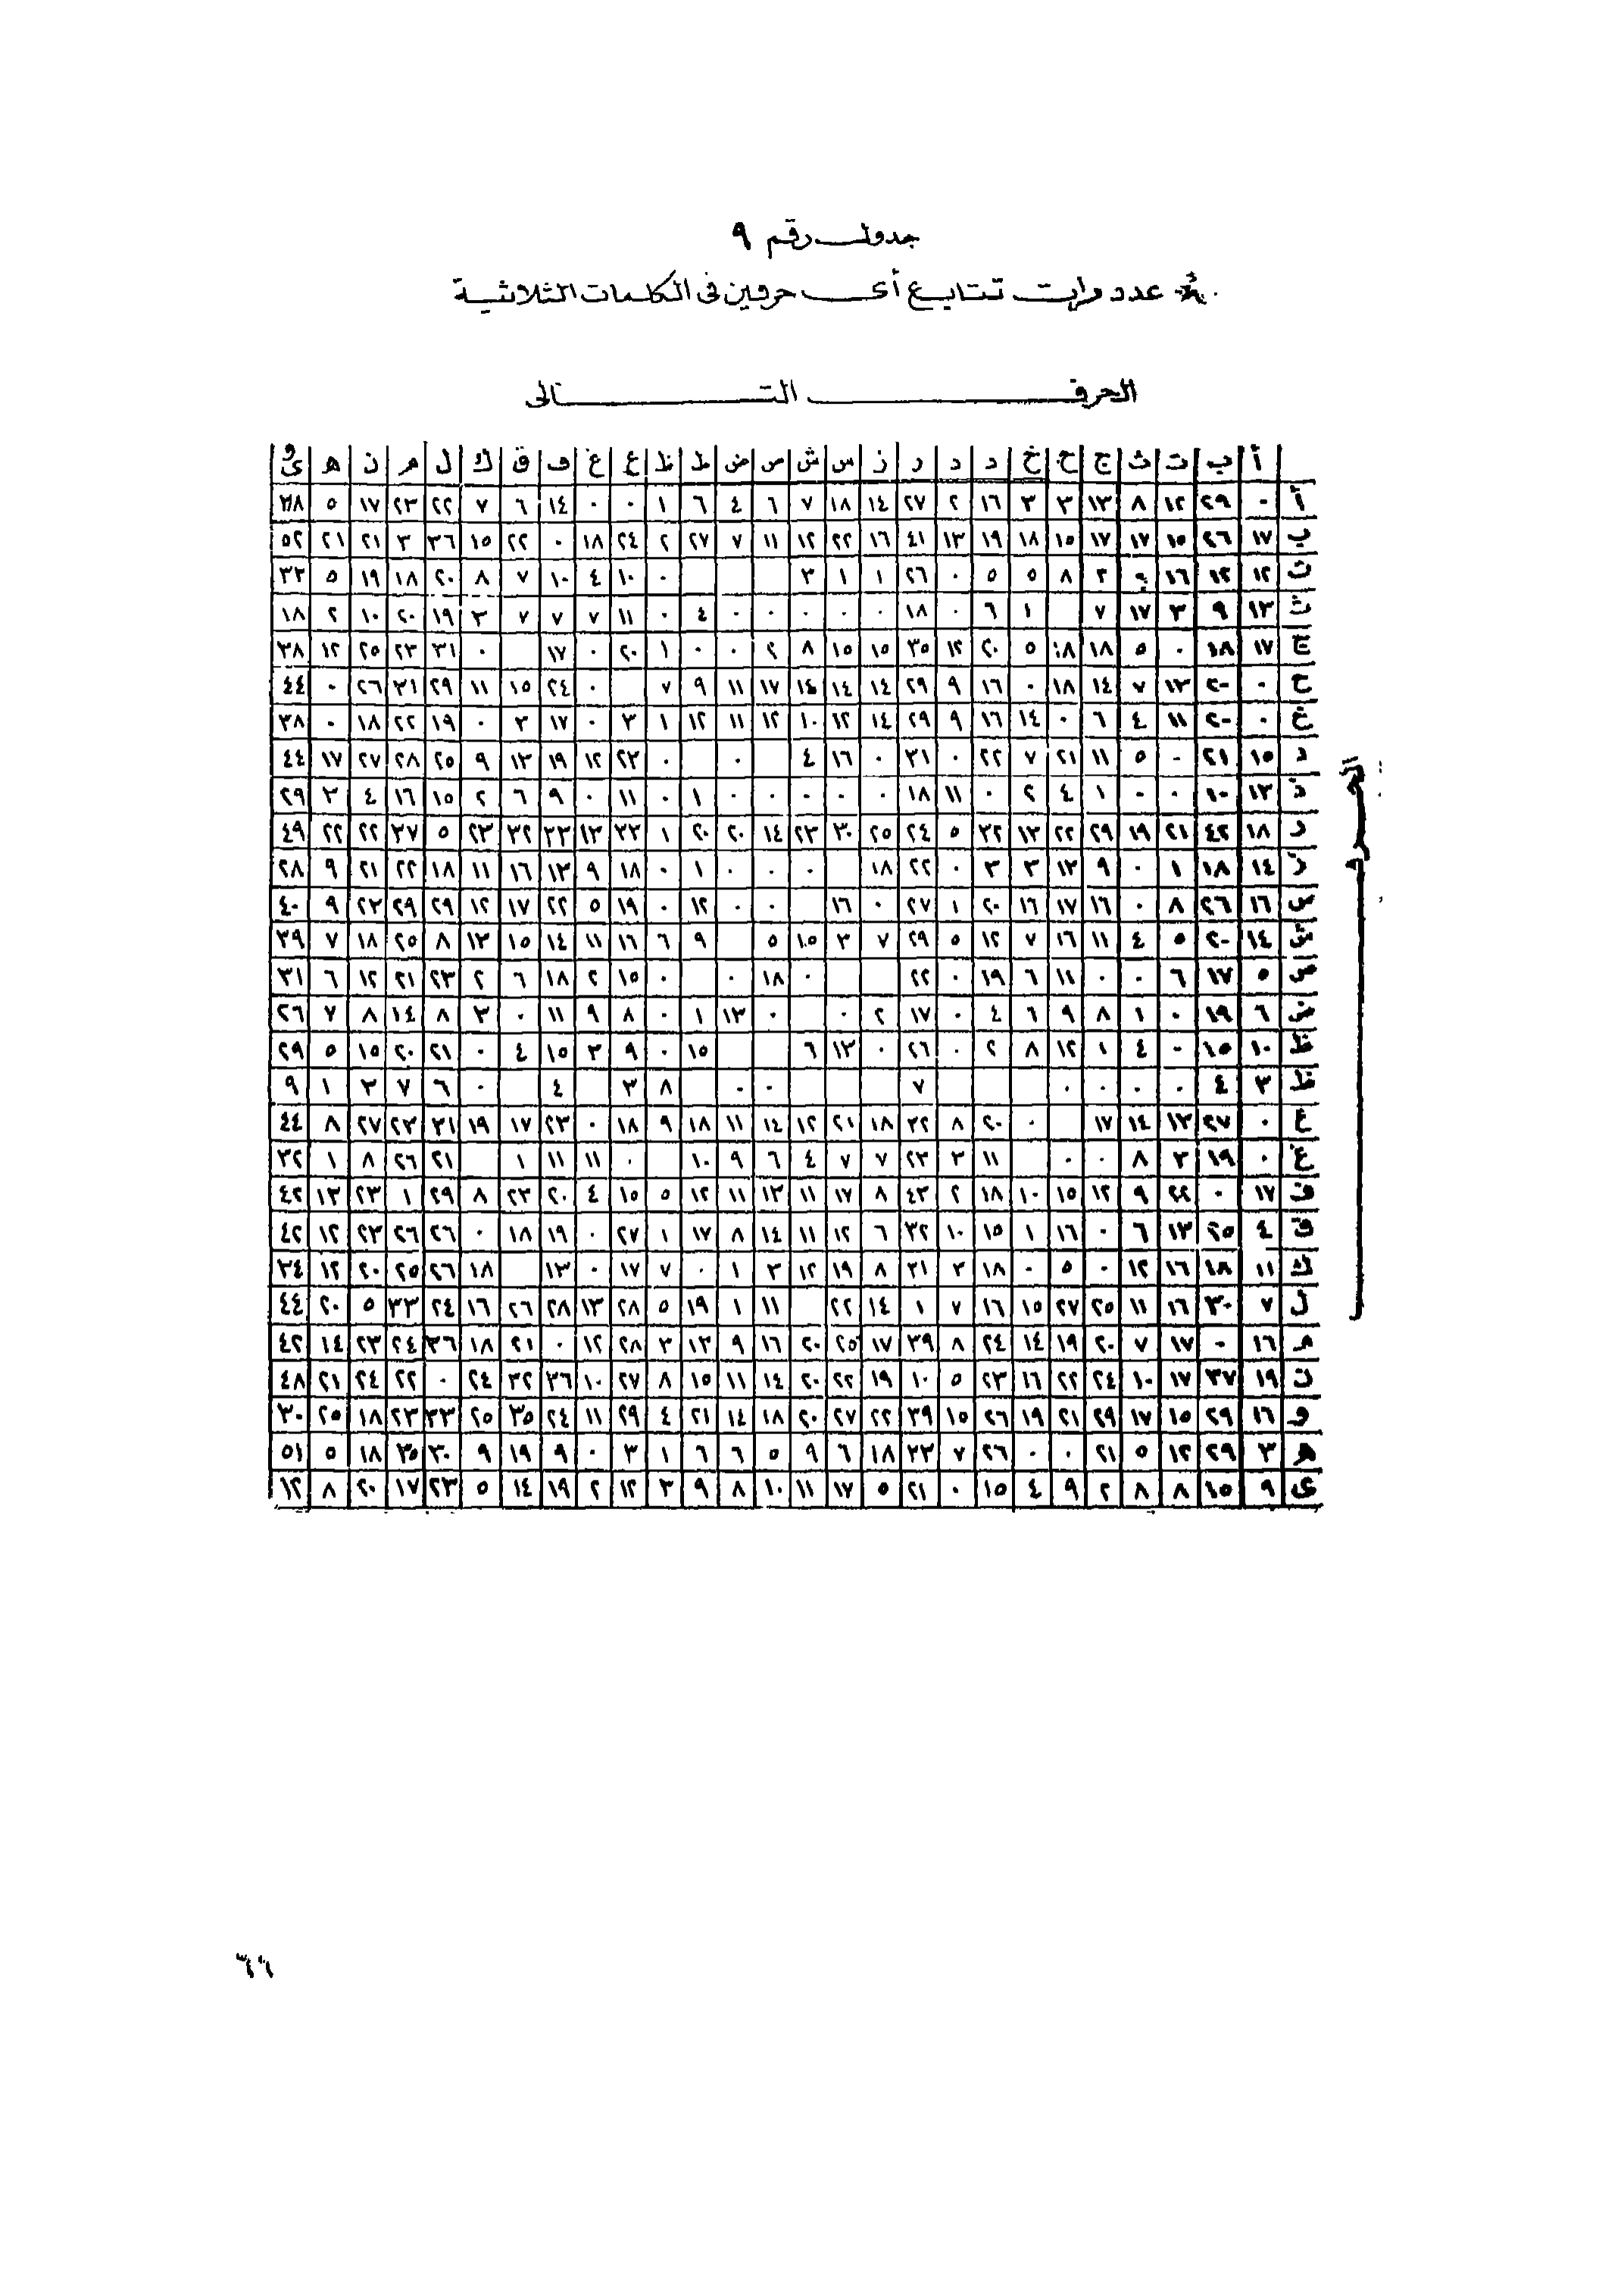 جدول رقم ٩
عدد مرات تتابع أى حرفين فى الكلمات الثلاثية
الحرف التالى
أ ب ت ث ج ح خ د د ر ز س ش ص ض ط ظ ع غ ف ق ك ل م ن ه و ى
أ ٠ ٢٩ ١٢ ٨ ١٣ ٣ ٣ ١٦ ٢ ٢٧ ١٤ ١٨ ٧ ٦ ٤ ٦ ١ ٠ ٠ ١٤ ٦ ٧ ٢٢ ٢٣ ١٧ ٥ ٣٨
ب ١٧ ٢٦ ١٥ ١٧ ١٧ ١٥ ١٨ ١٩ ١٣ ٤١ ١٦ ٢٢ ١٢ ١١ ٧ ٢٧ ٢ ٢٤ ١٨ ٠ ٢٢ ١٥ ٣٦ ٣ ٢١ ٢١ ٥٢
ت ١٢ ١٢ ١٦ ٠ ٣ ٨ ٥ ٥ ٠ ٢٦ ١ ١ ٣ ٠ ١٠ ٤ ١٠ ٧ ٨ ٢٠ ١٨ ١٩ ٥ ٣٢
ث ١٣ ٩ ٣ ١٧ ٧ ١ ٦ ٠ ١٨ ٠ ٠ ٠ ٠ ٠ ٤ ٠ ١١ ٧ ٧ ٧ ٣ ١٩ ٢٠ ١٠ ٢ ١٨
ج ١٧ ١٨ ٠ ٥ ١٨ ١٨ ٥ ٢٠ ١٢ ٣٥ ١٥ ١٥ ٨ ٢ ٠ ٠ ١ ٢٠ ٠ ١٧ ٠ ٣١ ٢٣ ٢٥ ١٢ ٣٨
ح ٠ ٢٠ ١٣ ٧ ١٤ ١٨ ٠ ١٦ ٩ ٢٩ ١٤ ١٤ ١٤ ١٧ ١١ ٩ ٧ ٠ ٢٤ ١٥ ١١ ٢٩ ٣١ ٢٦ ٠ ٤٤
خ ٠ ٢٠ ١١ ٤ ٦ ٠ ١٤ ١٦ ٩ ٢٩ ١٤ ١٢ ١٠ ١٢ ١١ ١٢ ١ ٣ ٠ ١٧ ٣ ٠ ١٩ ٢٢ ١٨ ٠ ٣٨
د ١٥ ٢١ ٠ ٥ ١١ ٢١ ٧ ٢٢ ٠ ٣١ ٠ ١٦ ٤ ٠ ٠ ٢٣ ١٢ ١٩ ١٣ ٩ ٢٥ ٢٨ ٢٧ ١٧ ٤٤
ذ ١٣ ١٠ ٠ ٠ ١ ٤ ٢ ٠ ١١ ١٨ ٠ ٠ ٠ ٠ ٠ ١ ٠ ١١ ٠ ٩ ٦ ٢ ١٥ ١٦ ٤ ٣ ٢٩
ر ١٨ ٤٢ ٢١ ١٩ ٢٩ ٢٢ ١٣ ٣٢ ٥ ٢٤ ٢٥ ٣٠ ٢٣ ١٤ ٢٠ ٢٠ ١ ٣٣ ١٣ ٣٣ ٣٢ ٢٣ ٥ ٣٧ ٢٢ ٢٢ ٤٩
ز ١٤ ١٨ ١ ٠ ٩ ١٣ ٣ ٣ ٠ ٢٢ ١٨ ٠ ٠ ٠ ١ ٠ ١٨ ٩ ١٣ ١٦ ١١ ١٨ ٢٢ ٢١ ٩ ٢٨
س ١٦ ٢٦ ٨ ٠ ١٦ ١٧ ١٦ ٢٠ ١ ٢٧ ٠ ١٦ ٠ ٠ ١٢ ٠ ١٩ ٥ ٢٢ ١٧ ١٢ ٢٩ ٢٩ ٢٣ ٩ ٤٠
ش ١٤ ٢٠ ٥ ٤ ١١ ١٦ ٧ ١٢ ٥ ٢٩ ٧ ٣ ١٥ ٥ ٩ ٦ ١٦ ١١ ١٤ ١٥ ١٣ ٨ ٢٥ ١٨ ٧ ٣٩
ص ٥ ١٧ ٦ ٠ ٠ ١١ ٦ ١٩ ٠ ٢٢ ٠ ١٨ ٠ ٠ ١٥ ٢ ١٨ ٦ ٢ ٢٣ ٢١ ١٢ ٦ ٣١
ض ٦ ١٩ ٠ ١ ٨ ٩ ٦ ٤ ٠ ١٧ ٢ ٠ ٠ ١٣ ١ ٠ ٨ ٩ ١١ ٠ ٣ ٨ ١٤ ٨ ٧ ٢٦
ط ١٠ ١٥ ٠ ٤ ١ ١٢ ٨ ٢ ٠ ٢٦ ٠ ١٣ ٦ ١٥ ٠ ٩ ٣ ١٥ ٤ ٠ ٢١ ٢٠ ١٥ ٥ ٢٩
ظ ٣ ٤ ٠ ٠ ٠ ٠ ٧ ٠ ٠ ٨ ٣ ٤ ٠ ٦ ٧ ٣ ١ ٩
ع ٠ ٢٧ ١٣ ١٤ ١٧ ٠ ٢٠ ٨ ٣٢ ١٨ ٢١ ١٢ ١٤ ١١ ١٨ ٩ ١٨ ٠ ٢٣ ١٧ ١٩ ٣١ ٢٣ ٢٧ ٨ ٤٤
غ ٠ ١٩ ٣ ٨ ٠ ٠ ١١ ٣ ٢٣ ٧ ٧ ٤ ٦ ٩ ١٠ ٠ ١١ ١١ ١ ٢١ ٢٦ ٨ ١ ٣٢
ف ١٧ ٠ ٢٢ ٩ ١٢ ١٥ ١٠ ١٨ ٢ ٤٣ ٨ ١٧ ١١ ١٣ ١١ ١٢ ٥ ١٥ ٤ ٢٠ ٢٣ ٨ ٢٩ ١ ٢٣ ١٣ ٤٢
ق ٤ ٢٥ ١٣ ٦ ٠ ١٦ ١ ١٥ ١٠ ٣٢ ٦ ١٢ ١١ ١٤ ٨ ١٧ ١ ٢٧ ٠ ١٩ ١٨ ٠ ٢٦ ٢٦ ٢٣ ١٢ ٤٢
ك ١١ ١٨ ١٦ ١٢ ٠ ٥ ٠ ١٨ ٣ ٣١ ٨ ١٩ ١٢ ٣ ١ ٠ ٧ ١٧ ٠ ١٣ ١٨ ٢٦ ٢٥ ٢٠ ١٢ ٣٤
ل ٧ ٣٠ ١٦ ١١ ٢٥ ٢٧ ١٥ ١٦ ٧ ١ ١٤ ٢٢ ١١ ١ ١٩ ٥ ٢٨ ١٣ ٢٨ ٢٦ ١٦ ٢٤ ٣٣ ٥ ٢٠ ٤٤
م ١٦ ٠ ١٧ ٧ ٢٠ ١٩ ١٤ ٢٤ ٨ ٣٩ ١٧ ٢٥ ٢٠ ١٦ ٩ ١٣ ٣ ٢٨ ١٢ ٠ ٢١ ١٨ ٣٦ ٢٤ ٢٣ ١٤ ٤٢
ن ١٩ ٣٧ ١٧ ١٠ ٢٤ ٢٢ ١٦ ٢٣ ٥ ١٠ ١٩ ٢٢ ٢٠ ١٤ ١١ ١٥ ٨ ٢٧ ١٠ ٣٦ ٣٢ ٢٤ ٠ ٢٢ ٢٤ ٢١ ٤٨
و ١٦ ٢٩ ١٥ ١٧ ٢٩ ٢١ ١٩ ٢٦ ١٥ ٣٩ ٢٢ ٢٧ ٢٠ ١٨ ١٤ ٢١ ٤ ٢٩ ١١ ٢٤ ٣٥ ٢٥ ٣٣ ٢٣ ١٨ ٢٥ ٣٠
ه ٣ ٢٩ ١٢ ٥ ٢١ ٠ ٠ ٢٦ ٧ ٣٣ ١٨ ٦ ٩ ٥ ٦ ٦ ١ ٣ ٠ ٩ ١٩ ٩ ٣٠ ٣٥ ١٨ ٥ ٥١
ى ٩ ١٥ ٨ ٨ ٢ ٩ ٤ ١٥ ٠ ٢١ ٥ ١٧ ١١ ١٠ ٨ ٩ ٣ ١٢ ٢ ١٩ ١٤ ٥ ٢٣ ١٧ ٢٠ ٨ ١٢
٦٦